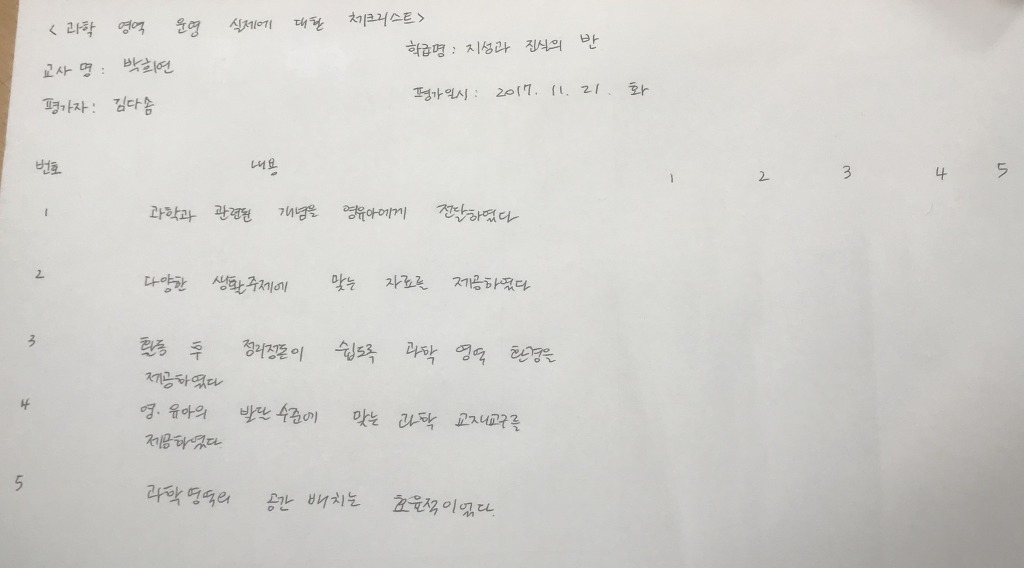 < 과학 영역 운영 실제에 대한 체크리스트>
학급명 : 지성과 진실의 반
교사 명 : 박희연
평가일시 : 2017. 11. 21. 화
평가자 : 김다솜
번호 내용 1 2 3 4 5
1 과학과 관련된 개념을 영유아에게 전달하였다
2 다양한 생활주제에 맞는 자료를 제공하였다
3 활동 후 정리정돈이 쉽도록 과학 영역 환경을
제공하였다
4 영·유아의 발달 수준에 맞는 과학 교재교구를
제공하였다.
5 과학영역의 공간 배치는 효율적이었다.